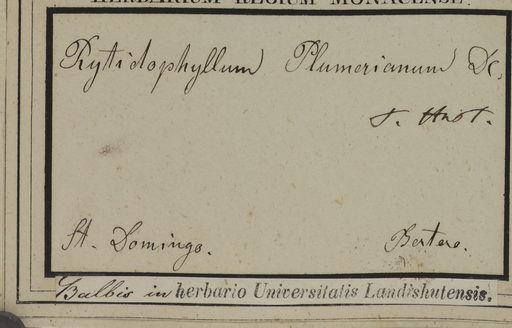 HERBARIUM REGIUM MONACENSE.
Rytidophyllum Plumerianum DC.
St. Domingo.
Bertero.
Balbis in herbario Universitatis Landishutensis.